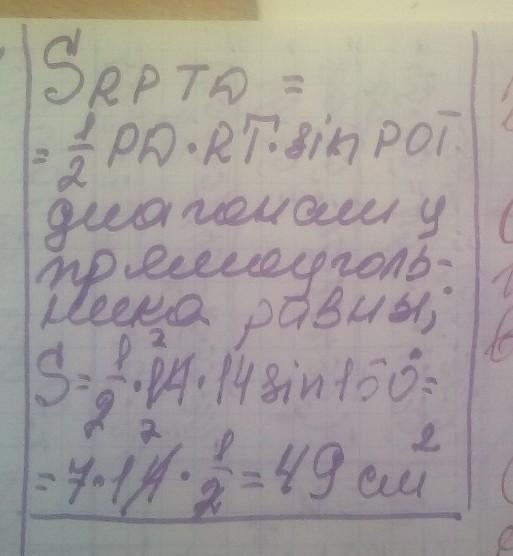 S RPTD =
= 1/2 PD · RT · sin POT.
диагонали у
прямоуголь-
ника равны;
S = 1/2 · 14 · 14 sin 150° =
7
= 7 · 14 · 1/2 = 49 см²
7